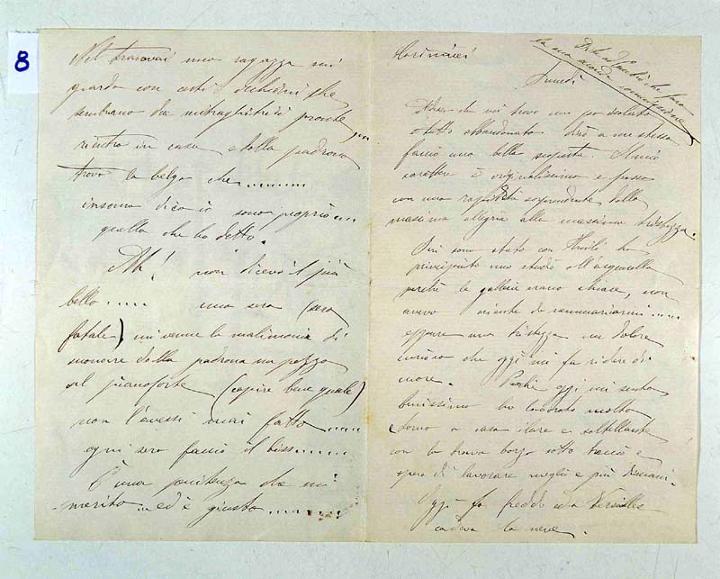 8
Nel tranvai una ragazza mi
guarda con certi occhioni che
sembrano da mitragliatrici pronte
rientro in casa e dalla padrona
trovo la belga che
insomma dico io sono proprio
quella che ha detto.
Ah! non dicevo il più
bello..... una sera (sera
fatale) mi venne la malinconia di
suonare della padrona un pezzo
al pianoforte (capire bene quale)
non l'avessi mai fatto
ogni sera faccio il bis
È una penitenza che mi
merito... ed è giusto
la mia
Lunedì
che mi trovo un po'
e tutto abbandonato dirò a me stesso
faccio una bella scoperta. Il mio
carattere è originalissimo e passo
con una rapidità sorprendente dalla
massima allegria alla massima tristezza.
Ieri sono stato con ho
principiato uno studio all'acquarella
perché le gallerie erano chiuse, non
avevo niente da rammaricarmi
eppure una tristezza un dolore
che oggi mi fa ridere di
cuore. oggi mi sento
benissimo ho lavorato molto
torno a casa ilare e saltellante
con la brava borsa sotto braccio e
spero di lavorare meglio e più domani.
Oggi fa freddo ed a Versailles
cadeva la neve.